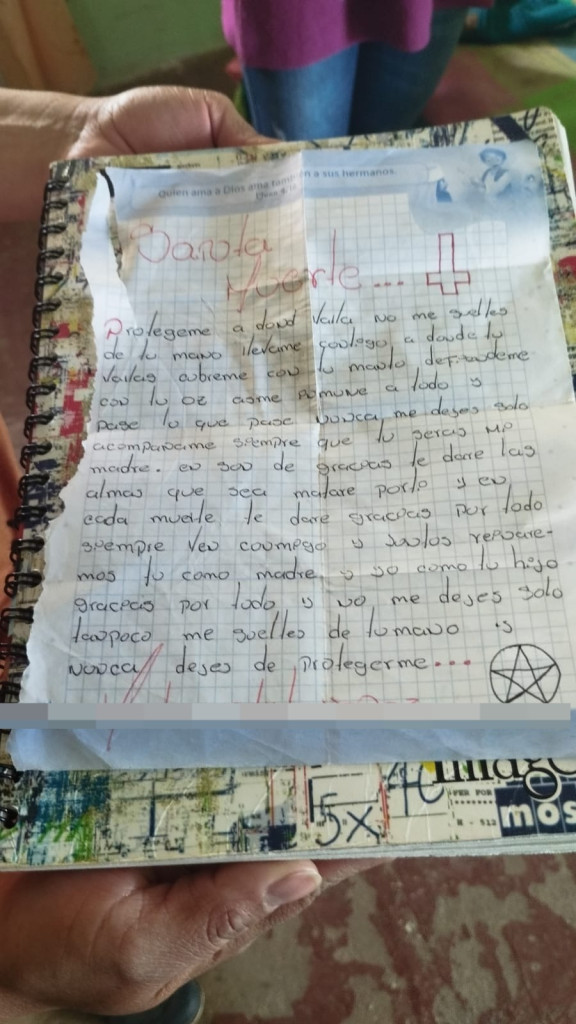 Quien ama a Dios ama también a sus hermanos.
Santa
Muerte...
Protegeme a dond valla no me suelles
de tu mano llevame contego, a donde tu
vallas cubreme con tu manto defiendeme
con tu oz asme inmune a todo y
pase lo que pase nunca me dejes solo
acompañame siempre que tu seras mi
madre. en son de gracias te dare las
almas que sea matare por ti y en
cada muerte te dare gracias por todo
siempre ven conmigo y juntos reinare-
mos tu como madre y yo como tu hijo
gracias por todo y no me dejes solo
tanpoco me suelles de tu mano y
nunca dejes de protegerme...
image
5x40
PER FOR
mos
H - 512